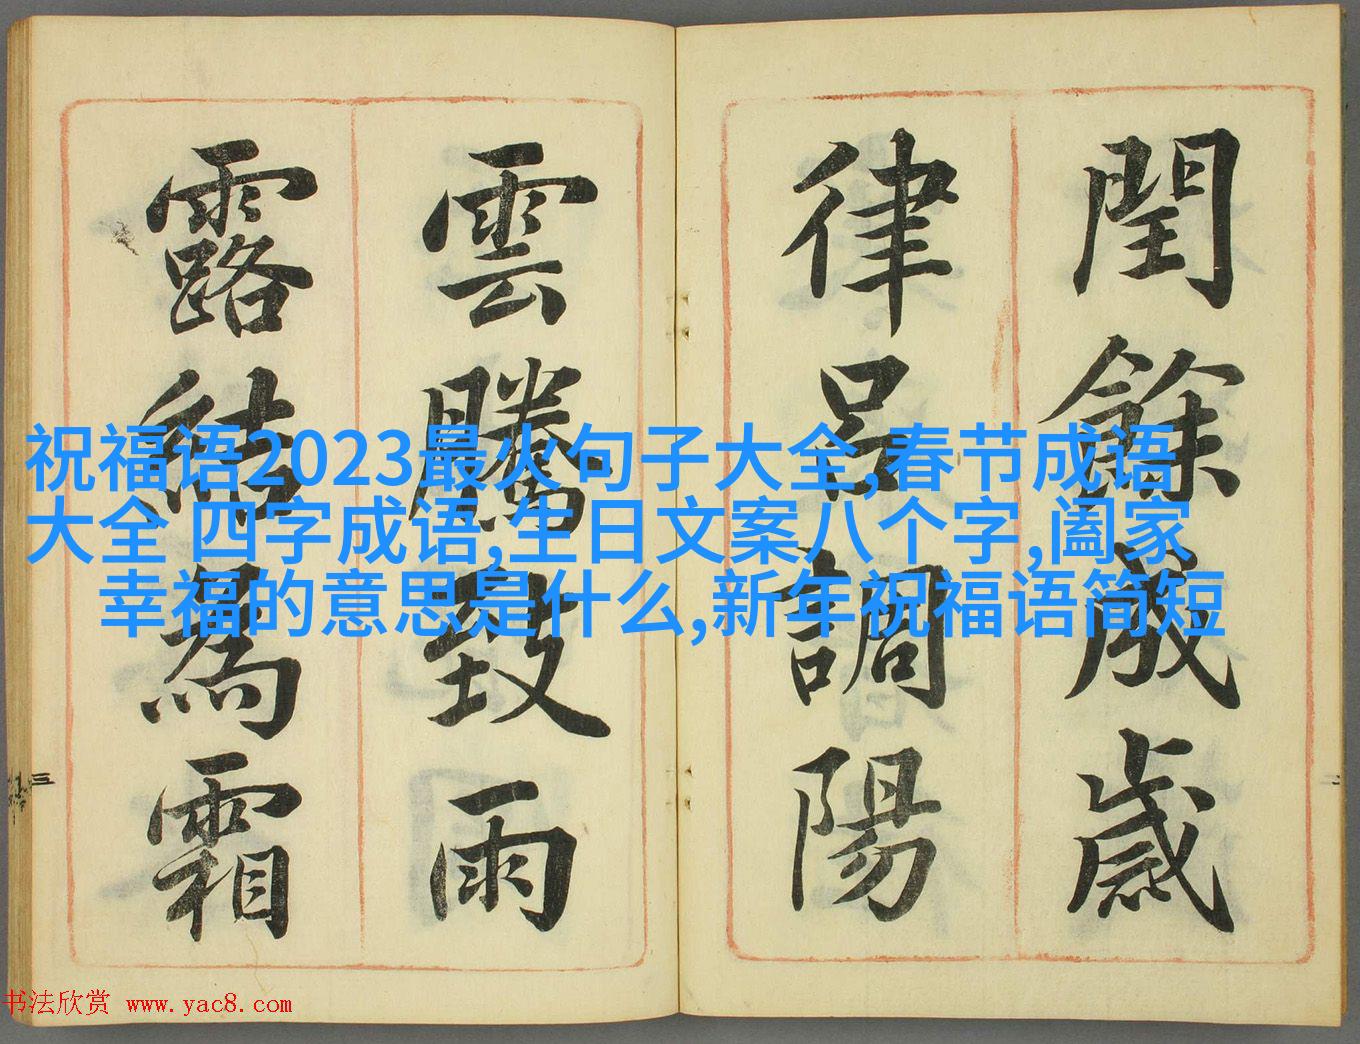 閏餘成歲
律呂調陽
雲騰致雨
露結為霜
祝福语2023最火句子大全,春节成语
大全 四字成语,生日文案八个字,阖家
幸福的意思是什么,新年祝福语简短
二
三
书法欣赏 www.yac8.com